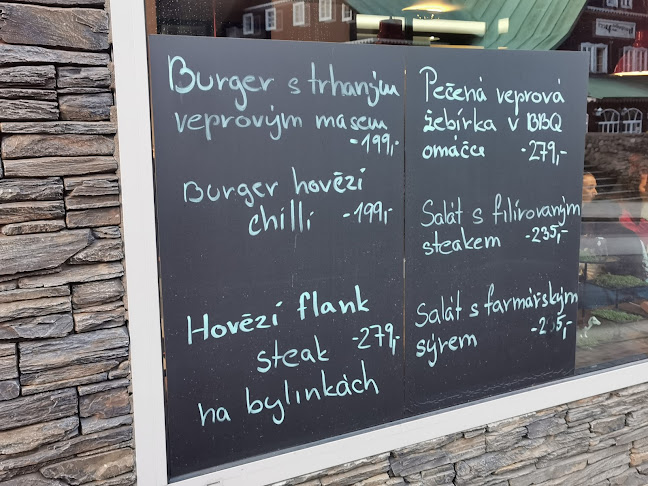 Burger s trhaným
veprovým masem
-199,-
Burger hovězí
chillí -199,-
Hovězí flank
steak -279,-
na bylinkách
Pečená veprová
žebírka v BBQ
omáčce -279,-
Salát s filírovaným
steakem -235,-
Salát s farmářským
sýrem